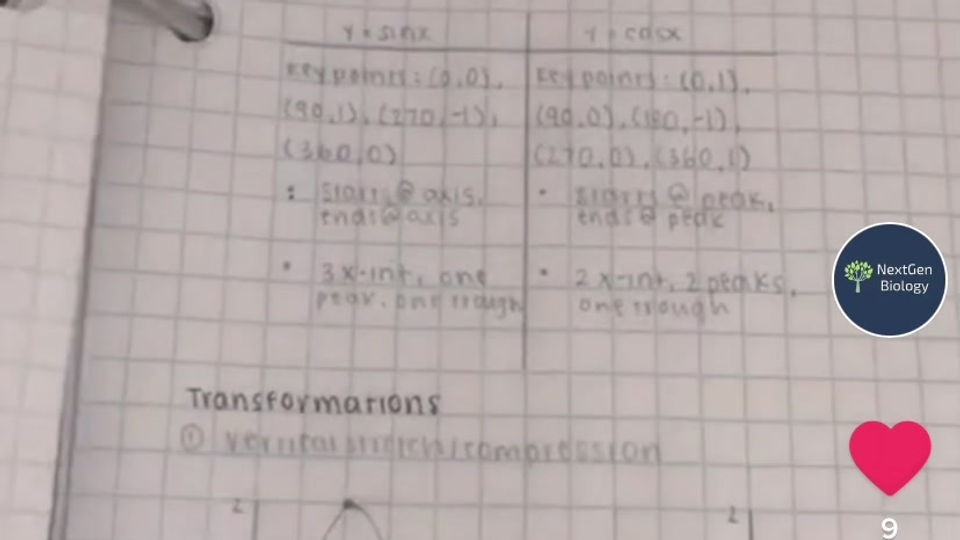 y = sinx
y = cosx
Key points: (0,0),
(90,1), (270,-1),
(360,0)
Key points: (0,1),
(90,0), (180,-1),
(270,0), (360,1)
: starts @ axis,
ends @ axis
• starts @ peak,
ends @ peak
• 3 x-int, one
peak, one trough
• 2 x-int, 2 peaks,
one trough
Transformations
① vertical stretch/compression
2
2
NextGen
Biology
9